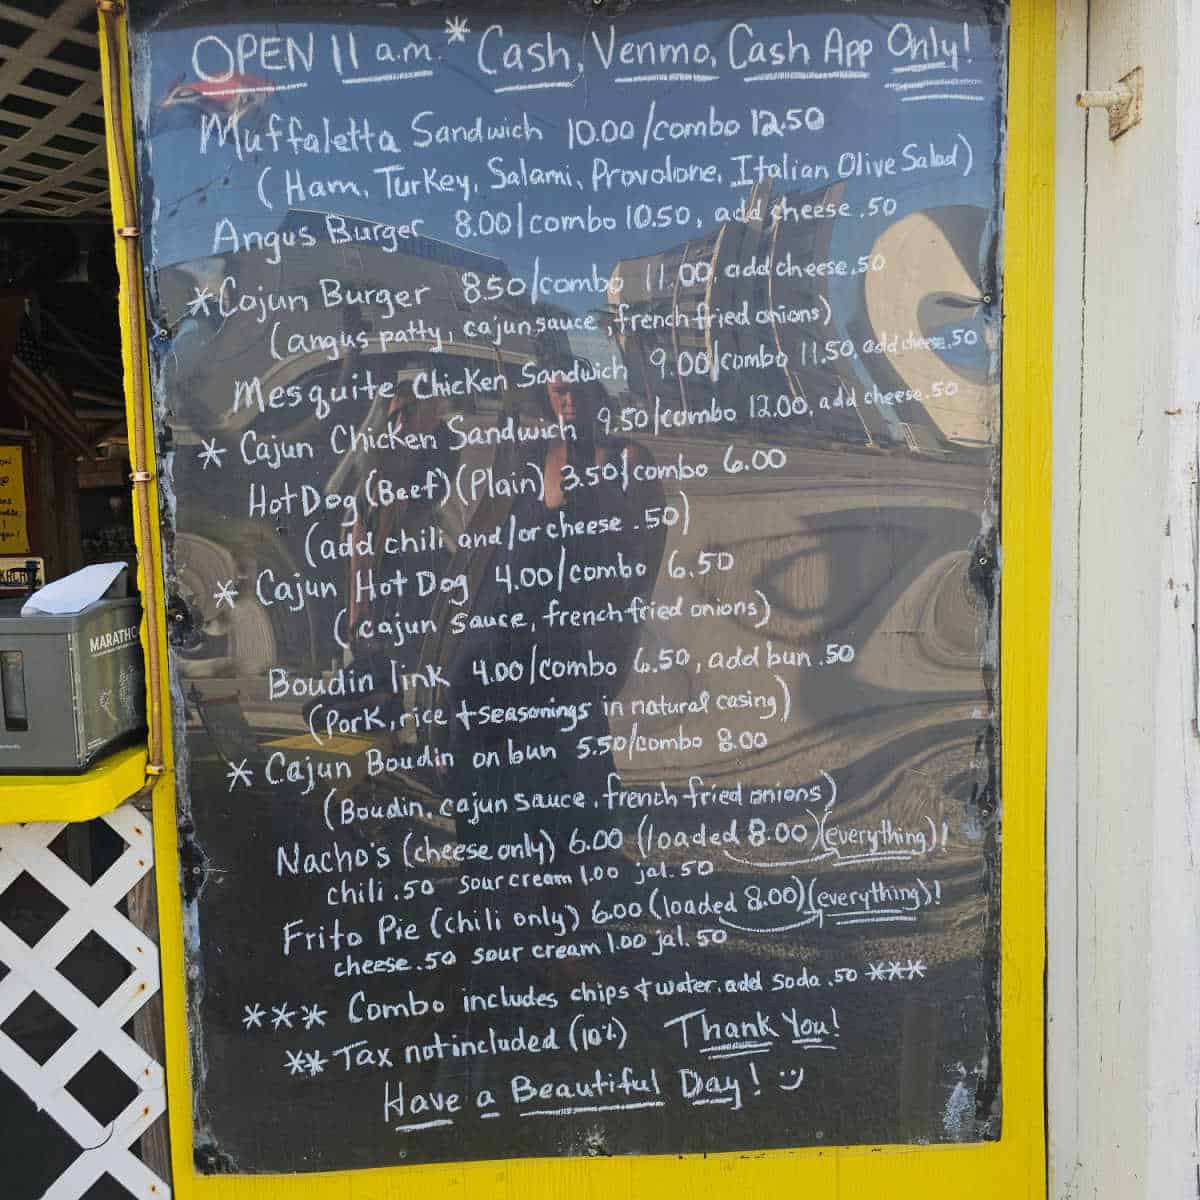 OPEN 11 a.m. * Cash, Venmo, Cash App Only!
Muffaletta Sandwich 10.00/combo 12.50
(Ham, Turkey, Salami, Provolone, Italian Olive Salad)
Angus Burger 8.00/combo 10.50, add cheese .50
*Cajun Burger 8.50/combo 11.00, add cheese .50
(angus patty, cajun sauce, french fried onions)
Mesquite Chicken Sandwich 9.00/combo 11.50, add cheese .50
* Cajun Chicken Sandwich 9.50/combo 12.00, add cheese .50
Hot Dog (Beef) (Plain) 3.50/combo 6.00
(add chili and/or cheese .50)
* Cajun Hot Dog 4.00/combo 6.50
(cajun sauce, french fried onions)
Boudin link 4.00/combo 6.50, add bun .50
(Pork, rice + seasonings in natural casing)
* Cajun Boudin on bun 5.50/combo 8.00
(Boudin, cajun sauce, french fried onions)
Nacho's (cheese only) 6.00 (loaded 8.00) (everything)!
chili .50 sour cream 1.00 jal. 50
Frito Pie (chili only) 6.00 (loaded 8.00) (everything)!
cheese .50 sour cream 1.00 jal. 50
*** Combo includes chips + water, add soda .50 ***
** Tax not included (10%) Thank You!
Have a Beautiful Day!